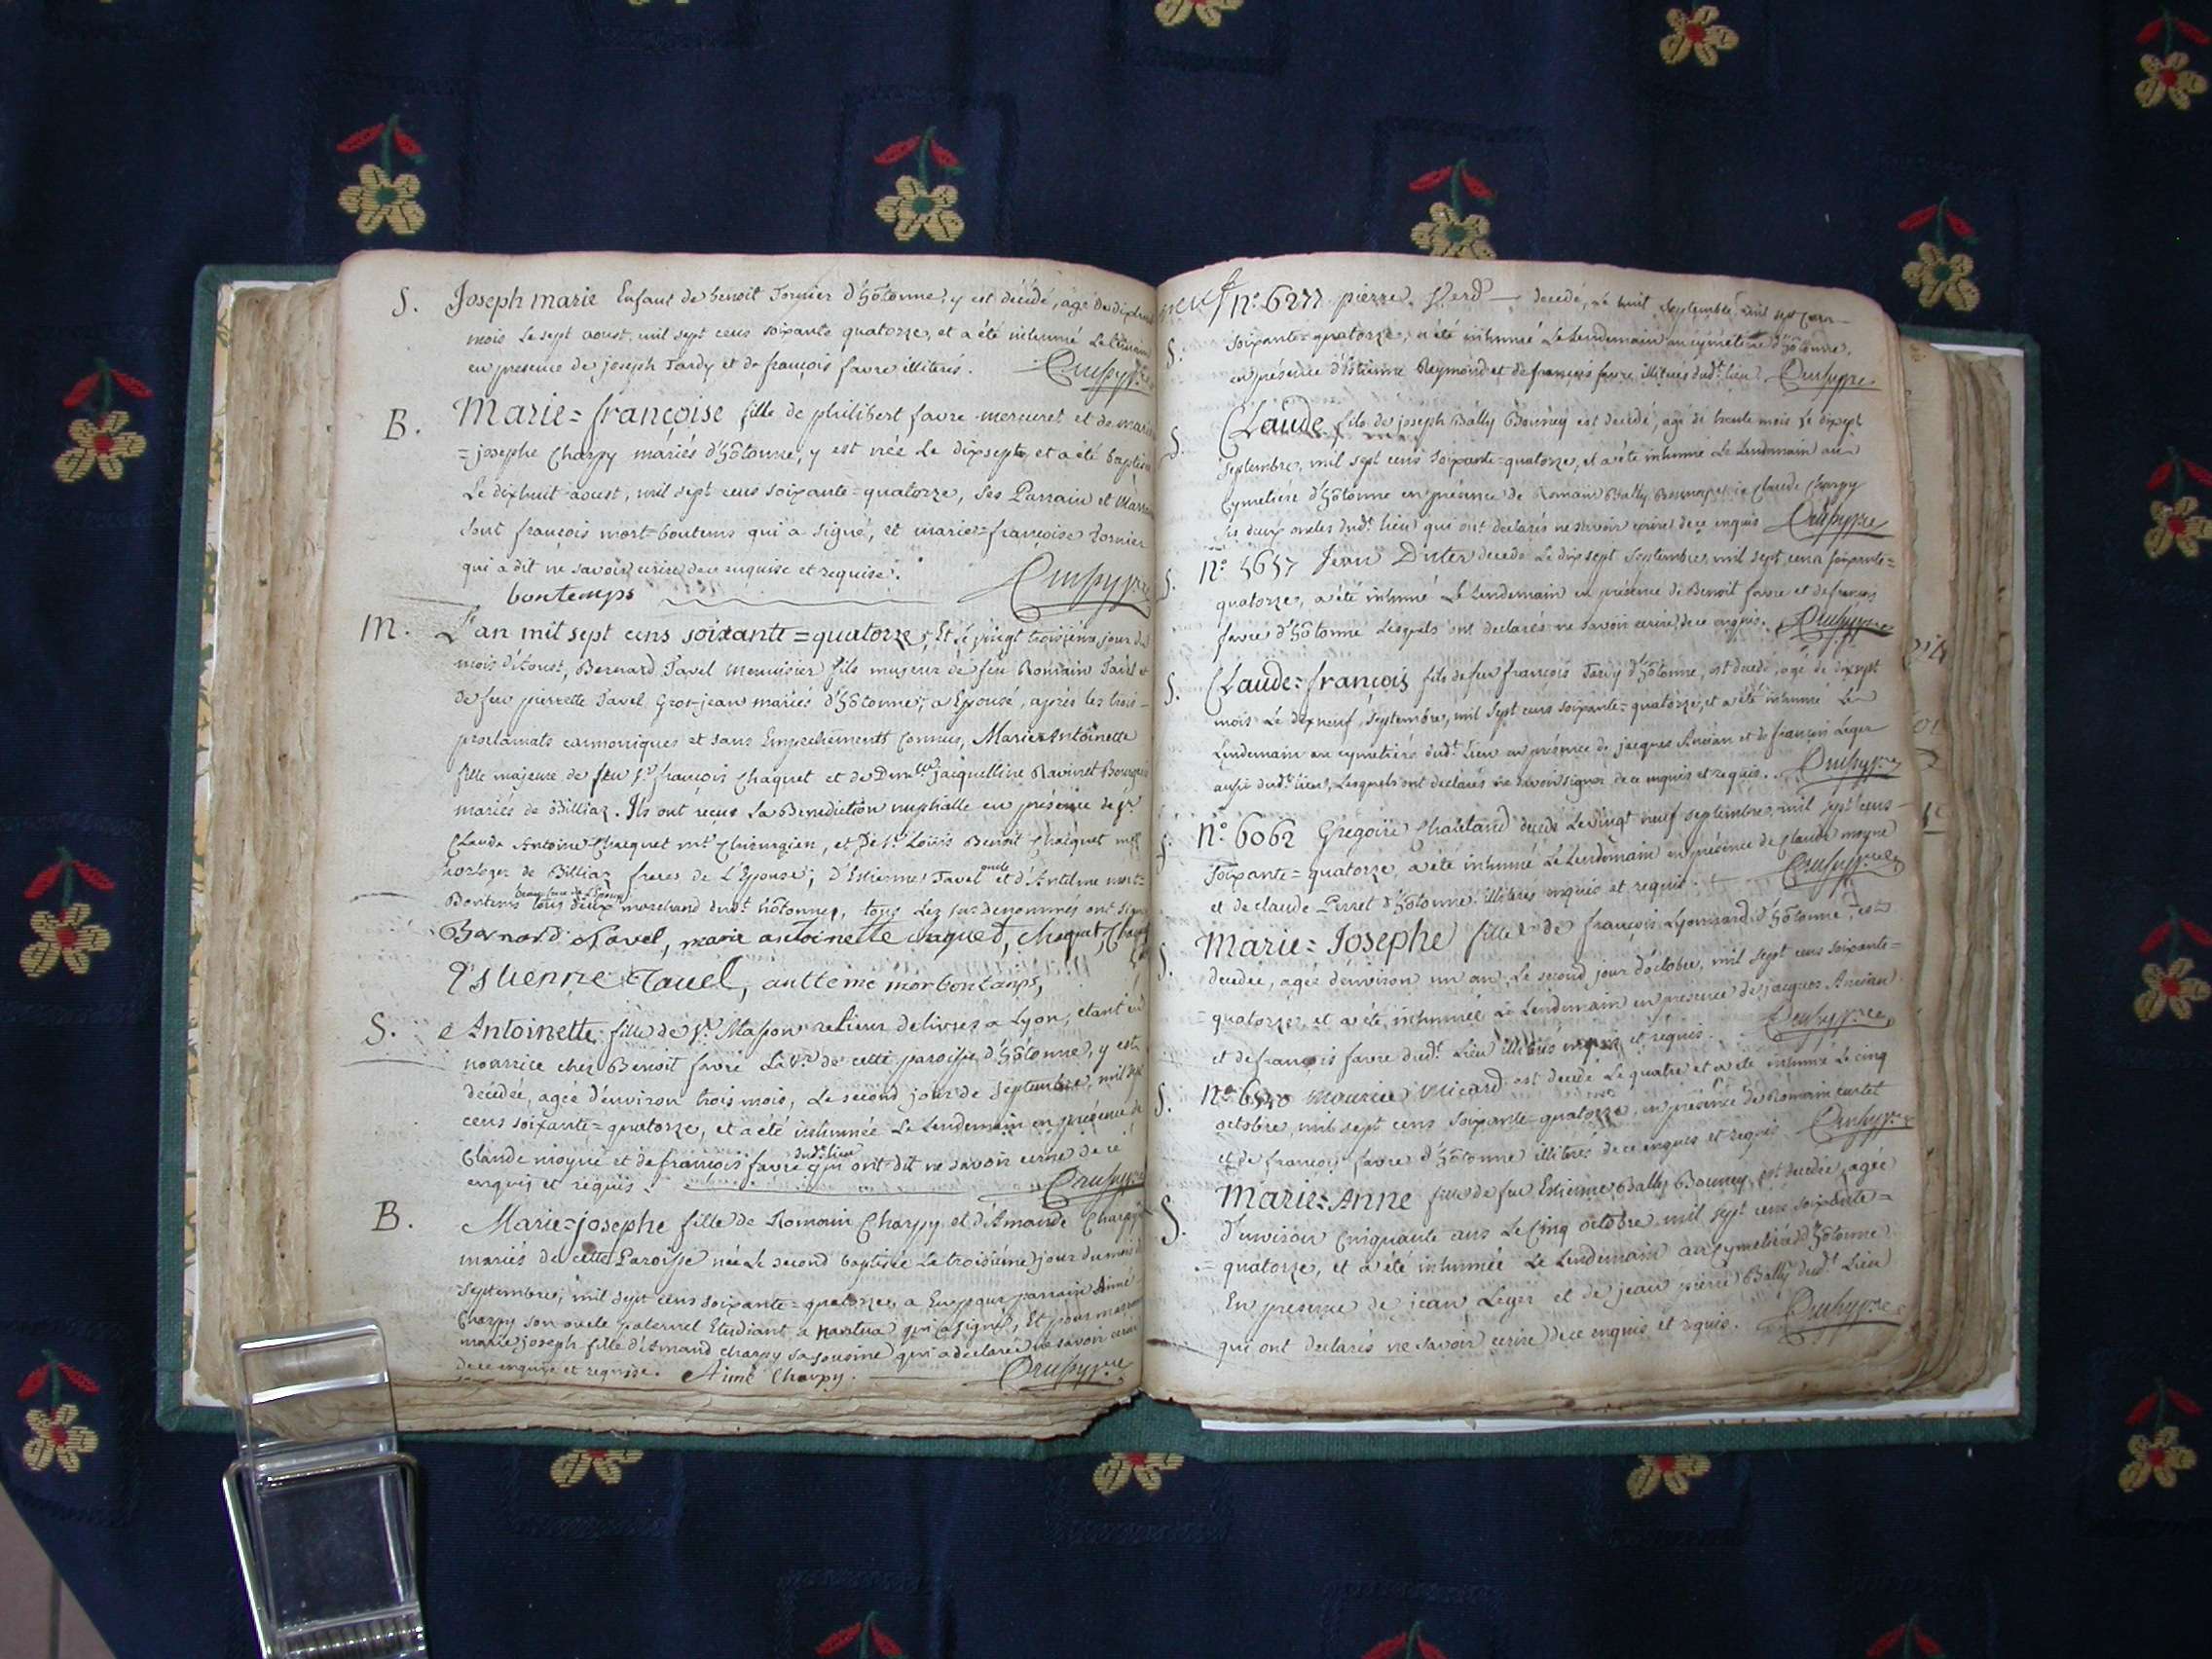 S. Joseph marie Enfant de benoit Tornier d'hôtonne, y est décédé, agé de
mois le sept aoust, mil sept cens soixante quatorze, et a été inhumé Le
en presence de joseph Tardy et de françois favre illiterés.
B. Marie=françoise fille de philibert favre mercuret et de marie
=josephe Charpy mariés d'hôtonne, y est née Le dixsept, et a été baptisée
Le dixhuit aoust, mil sept cens soixante=quatorze, Ses Parrain et
sont françois mort=boutems qui a signé, et marie=françoise tornier
qui a dit ne savoir ecrire de ce enquise et requise.
bontemps
M. L'an mil sept cens soixante=quatorze, Et le vingt troisième jour du
mois d'Aoust, Bernard Tavel Menuisier fils majeur de feu Romain Tavel et
de feu pierrette Tavel Gros-jean mariés d'hôtonne, a Epousé, après les trois
proclamats cannoniques et sans Empechements Connus, Marie Antoinette
fille majeure de feu Sr françois Chaquet et de Demlle jacquelline Ravinet
mariés de Billiaz. Ils ont reçus La Benediction nuptialle en présence de Sr
Claude Antoine Chacquet mt Chirurgien, et De Sr Loüis Benoit Chacquet
horloger de Billiaz freres de L'Epouse; d'Estienne Tavel oncle et d'Antelme mort=
Bontems tous deux marchand dudt hôtonne, tous Les susdenommés ont signé
Bernard Tavel, marie antoinette chaquet, Chaquet,
Estienne Tavel, antteme morbontamps,
S. Antoinette fille de Sr Masson relieur de livres a Lyon, etant en
nourrice chez Benoit favre de cette paroisse d'hôtonne, y est
décédée, agée d'environ trois mois, Le second jour de Septembre, mil sept
cens soixante=quatorze, et a été inhumée Le Lendemain en présence de
Claude moyne et de françois favre dudt lieu qui ont dit ne savoir ecrire de ce
enquis et requis.
B. Marie=josephe fille de Romain Charpy et d'Amande Charpy
mariés de cette Paroisse née Le second baptisée Le troisième jour du mois de
Septembre, mil sept cens soixante=quatorze, a Eu pour parrain Aimé
Charpy son oncle paternel Etudiant a Nantua qui a signé, Et pour
marie joseph fille d'Amand charpy sa cousine qui a declarée ne savoir ecrire
de ce enquise et requise. Aimé Charpy.
neuf n° 6277 pierre decedé, Le huit septembre mil sept cens
S. soixante=quatorze, a été inhumé Le Lendemain au cymetière d'hôtonne,
en présence d'Estienne Reymond et de françois favre illiterés dudt lieu
S. Claude fils de joseph Bally Bounéy est decedé, agé de trente mois Le dixsept
septembre, mil sept cens soixante=quatorze, et a été inhumé Le Lendemain au
Cymetière d'hôtonne en présence de Romain Bally Bouney et de Claude Charpy
Ses deux oncles dudt lieu qui ont declarés ne savoir ecrire de ce enquis
S. n° 5657 Jean Duter decedé Le dix sept septembre, mil sept cens soixante=
quatorze, a été inhumé Le Lendemain en présence de Benoit favre et de françois
favre d'hôtonne Lesquels ont declarés ne savoir ecrire de ce enquis.
S. Claude=françois fils de feu françois Tardy d'hôtonne, est decedé, agé de dixsept
mois Le dixneuf septembre, mil sept cens soixante=quatorze, et a été inhumé Le
Lendemain au cymetière dudt Lieu en présence de jacques Ancian et de françois Leger
aussi dudt lieu, Lesquels ont declarés ne savoir signer de ce enquis et requis.
S. n° 6062 Gregoire decedé Le vingt neuf septembre, mil sept cens
soixante=quatorze a été inhumé Le Lendemain en présence de Claude moyne
et de claude Perret d'hôtonne illiterés enquis et requis.
S. Marie=Josephe fille de françois Lyonnard d'hôtonne est
decedée, agée d'environ un an, Le second jour d'octobre, mil sept cens soixante=
=quatorze, et a été inhumée Le Lendemain en présence de jacques Ancian
et de françois favre dudt Lieu illiterés enquis et requis.
S. Maurice Micard est decedé Le quatre et a été inhumé Le cinq
octobre, mil sept cens soixante quatorze, en présence de Romain curtet
et de françois favre d'hôtonne illiterés de ce enquis et requis
S. Marie=Anne fille de feu Estienne Bally Bouney est decedée, agée
d'environ Cinquante ans Le Cinq octobre mil sept cens soixante=
=quatorze, et a été inhumée Le Lendemain au Cymetière d'hôtonne
En presence de jean Leger et de jean pierre Bally dudt Lieu
qui ont declarés ne savoir ecrire de ce enquis et requis.